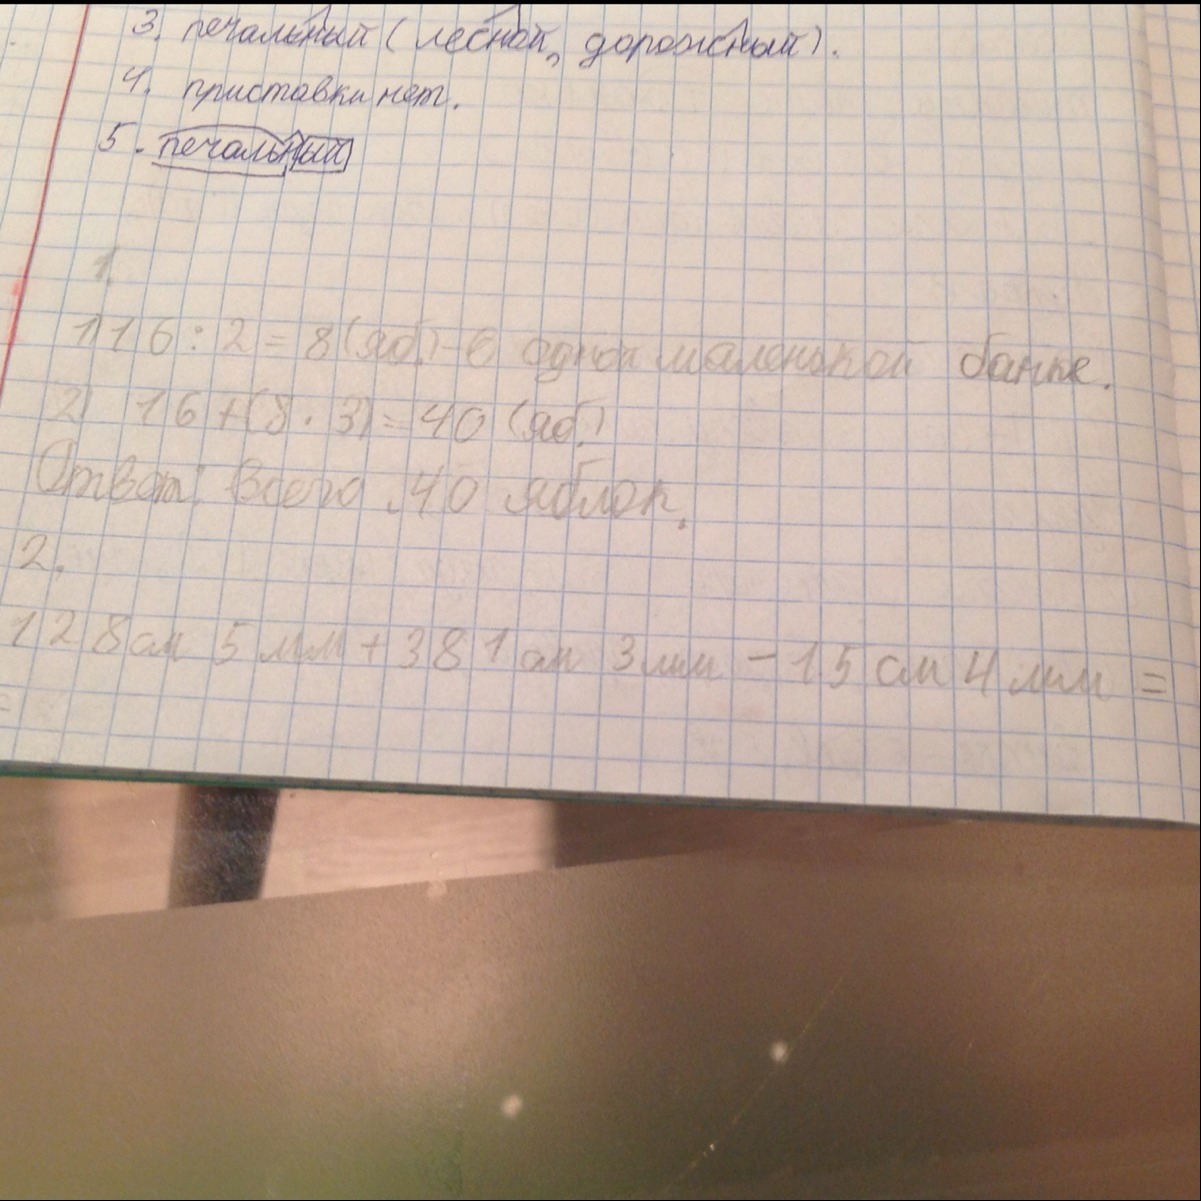 3. печальный (лесной, дорожный).
4. приставки нет.
5. печальный
1.
1) 16 : 2 = 8 (яб.) - в одной маленькой банке.
2) 16 + (8 · 3) = 40 (яб.)
Ответ: всего 40 яблок.
2.
128 см 5 мм + 381 см 3 мм - 15 см 4 мм =
=